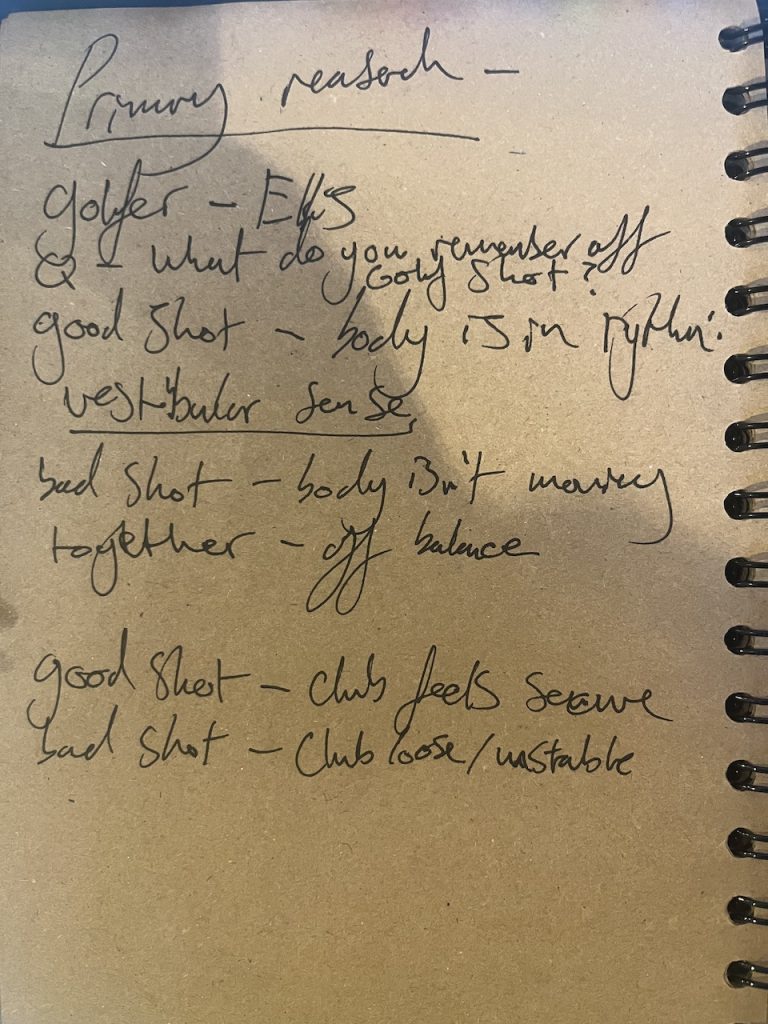 Primary research -
golfer - Ellis
Q - what do you remember off
Golf Shot?
good shot - body is in rythm.
vestibular sense.
bad shot - body isn't moving
together - off balance
good shot - club feels secure
bad shot - Club loose/unstable